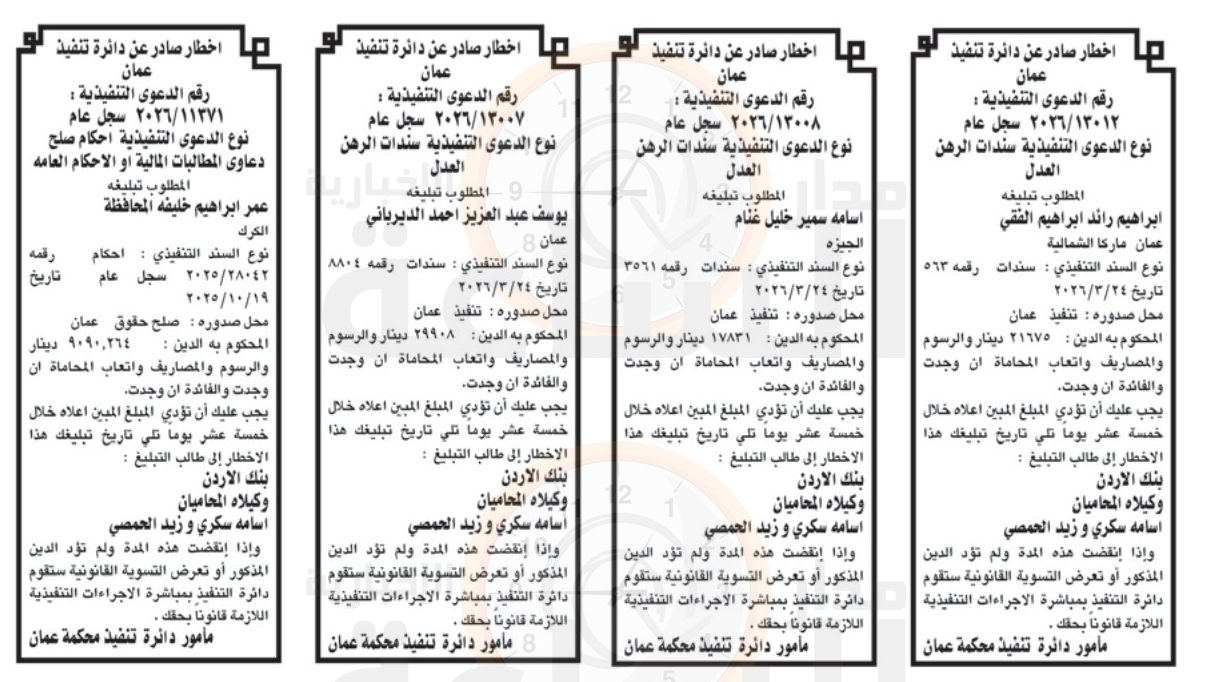 اخطار صادر عن دائرة تنفيذ
عمان
رقم الدعوى التنفيذية :
٢٠٢٦/١٣٠١٢ سجل عام
نوع الدعوى التنفيذية سندات الرهن
العدل
المطلوب تبليغه
ابراهيم رائد ابراهيم الفقي
عمان ماركا الشمالية
نوع السند التنفيذي : سندات رقمه ٥٦٣
تاريخ ٢٠٢٦/٣/٢٤
محل صدوره : تنفيذ عمان
المحكوم به الدين : ٢١٦٧٥ دينار والرسوم
والمصاريف واتعاب المحاماة ان وجدت
والفائدة ان وجدت.
يجب عليك أن تؤدي المبلغ المبين اعلاه خلال
خمسة عشر يوماً تلي تاريخ تبليغك هذا
الاخطار إلى طالب التبليغ :
بنك الاردن
وكيلاه المحاميان
اسامه سكري و زيد الحمصي
وإذا إنقضت هذه المدة ولم تؤد الدين
المذكور أو تعرض التسوية القانونية ستقوم
دائرة التنفيذ بمباشرة الاجراءات التنفيذية
اللازمة قانوناً بحقك .
مأمور دائرة تنفيذ محكمة عمان
اخطار صادر عن دائرة تنفيذ
عمان
رقم الدعوى التنفيذية :
٢٠٢٦/١٣٠٠٨ سجل عام
نوع الدعوى التنفيذية سندات الرهن
العدل
المطلوب تبليغه
اسامه سمير خليل غنام
الجيزه
نوع السند التنفيذي : سندات رقمه ٣٥٦١
تاريخ ٢٠٢٦/٣/٢٤
محل صدوره : تنفيذ عمان
المحكوم به الدين : ١٧٨٣١ دينار والرسوم
والمصاريف واتعاب المحاماة ان وجدت
والفائدة ان وجدت.
يجب عليك أن تؤدي المبلغ المبين اعلاه خلال
خمسة عشر يوماً تلي تاريخ تبليغك هذا
الاخطار إلى طالب التبليغ :
بنك الاردن
وكيلاه المحاميان
اسامه سكري و زيد الحمصي
وإذا إنقضت هذه المدة ولم تؤد الدين
المذكور أو تعرض التسوية القانونية ستقوم
دائرة التنفيذ بمباشرة الاجراءات التنفيذية
اللازمة قانوناً بحقك .
مأمور دائرة تنفيذ محكمة عمان
اخطار صادر عن دائرة تنفيذ
عمان
رقم الدعوى التنفيذية :
٢٠٢٦/١٣٠٠٧ سجل عام
نوع الدعوى التنفيذية سندات الرهن
العدل
المطلوب تبليغه
يوسف عبد العزيز احمد الديرباني
عمان
نوع السند التنفيذي : سندات رقمه ٨٨٠٤
تاريخ ٢٠٢٦/٣/٢٤
محل صدوره : تنفيذ عمان
المحكوم به الدين : ٢٩٩٠٨ دينار والرسوم
والمصاريف واتعاب المحاماة ان وجدت
والفائدة ان وجدت.
يجب عليك أن تؤدي المبلغ المبين اعلاه خلال
خمسة عشر يوماً تلي تاريخ تبليغك هذا
الاخطار إلى طالب التبليغ :
بنك الاردن
وكيلاه المحاميان
اسامه سكري و زيد الحمصي
وإذا إنقضت هذه المدة ولم تؤد الدين
المذكور أو تعرض التسوية القانونية ستقوم
دائرة التنفيذ بمباشرة الاجراءات التنفيذية
اللازمة قانوناً بحقك .
مأمور دائرة تنفيذ محكمة عمان
اخطار صادر عن دائرة تنفيذ
عمان
رقم الدعوى التنفيذية :
٢٠٢٦/١١٣٧١ سجل عام
نوع الدعوى التنفيذية احكام صلح
دعاوى المطالبات المالية او الاحكام العامه
المطلوب تبليغه
عمر ابراهيم خليفه المحافظة
الكرك
نوع السند التنفيذي : احكام رقمه
٢٠٢٥/٢٨٠٤٢ سجل عام تاريخ
٢٠٢٥/١٠/١٩
محل صدوره : صلح حقوق عمان
المحكوم به الدين : ٩٠٩٠,٢٦٤ دينار
والرسوم والمصاريف واتعاب المحاماة ان
وجدت والفائدة ان وجدت.
يجب عليك أن تؤدي المبلغ المبين اعلاه خلال
خمسة عشر يوماً تلي تاريخ تبليغك هذا
الاخطار إلى طالب التبليغ :
بنك الاردن
وكيلاه المحاميان
اسامه سكري و زيد الحمصي
وإذا إنقضت هذه المدة ولم تؤد الدين
المذكور أو تعرض التسوية القانونية ستقوم
دائرة التنفيذ بمباشرة الاجراءات التنفيذية
اللازمة قانوناً بحقك .
مأمور دائرة تنفيذ محكمة عمان
مدار
الساعة
الإخبارية